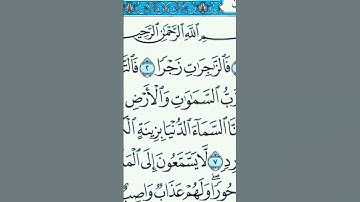 ـمِ ٱللَّهِ ٱلرَّحْمَٰنِ ٱلرَّحِيـ
فَٱلزَّٰجِرَٰتِ زَجْرًا ٢ فَٱلتَّـ
رَبُّ ٱلسَّمَٰوَٰتِ وَٱلْأَرْضِ
ـنَّا ٱلسَّمَآءَ ٱلدُّنْيَا بِزِينَةٍ ٱلْكَـ
ـرِدٍ ٧ لَّا يَسَّمَّعُونَ إِلَى ٱلْمَـ
حُورًاۖ وَلَهُمْ عَذَابٌ وَاصِبٌ